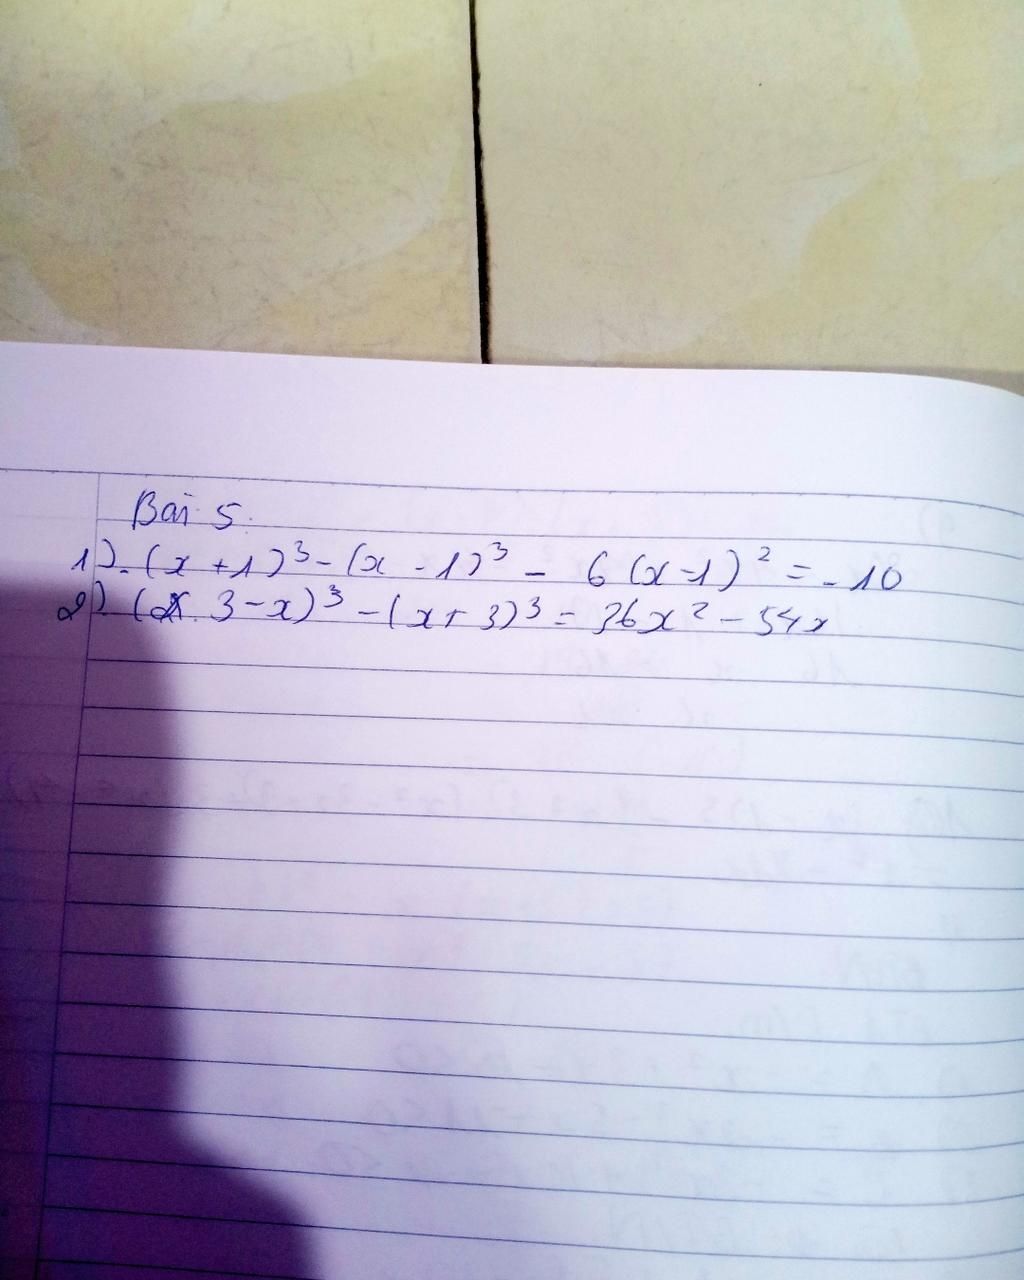 Bài 5.
1). (x + 1)³ - (x - 1)³ - 6 (x - 1)² = - 10
2). (3 - x)³ - (x + 3)³ = 36x² - 54x